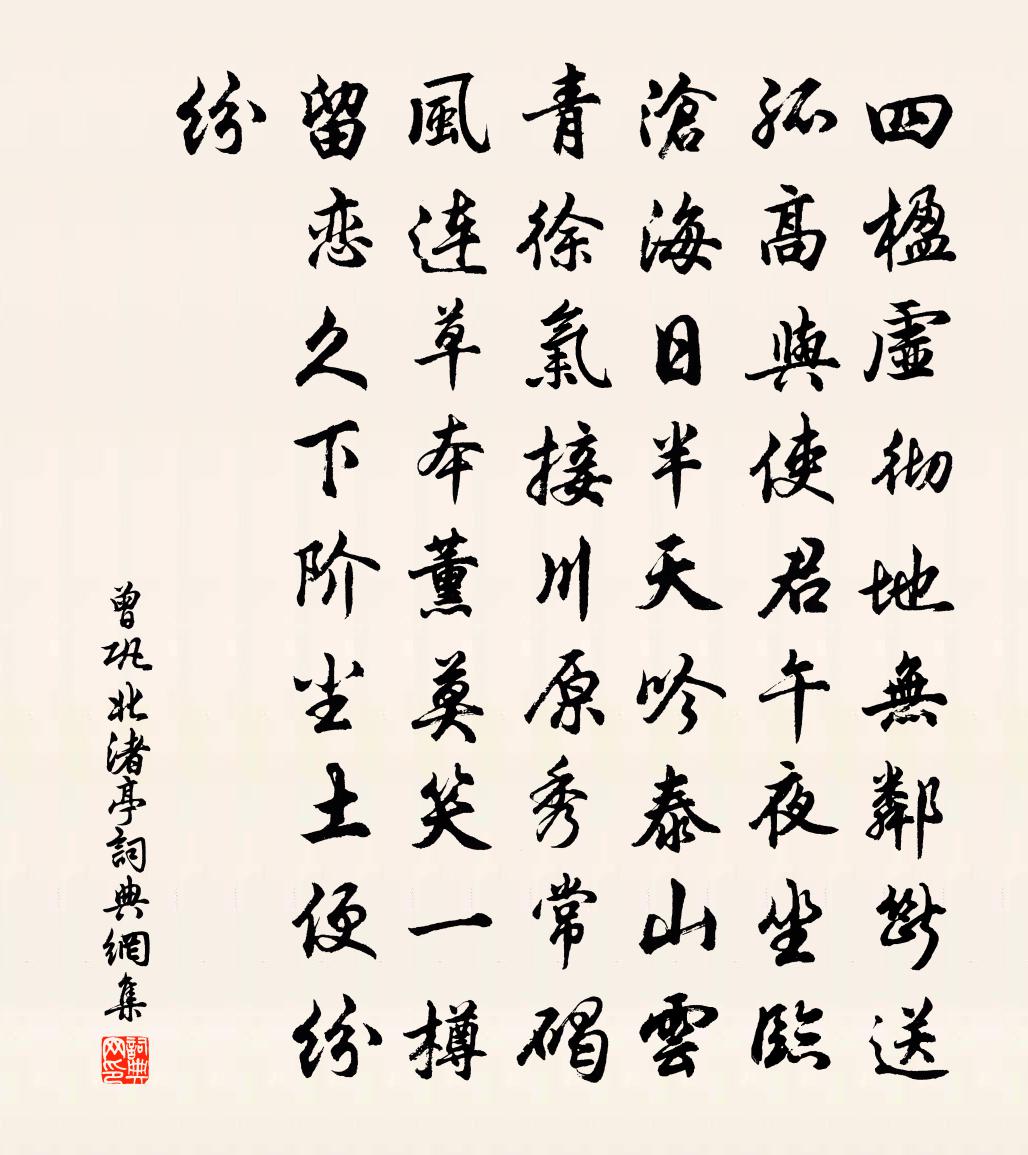 四楹虛彻地無鄰斷送
孤高與使君午夜坐臨
滄海日半天吟泰山雲
青徐氣接川原秀常碣
風連草本薰莫笑一樽
留恋久下阶尘土便紛
紛
曾巩北渚亭詞典網集
詞典网印